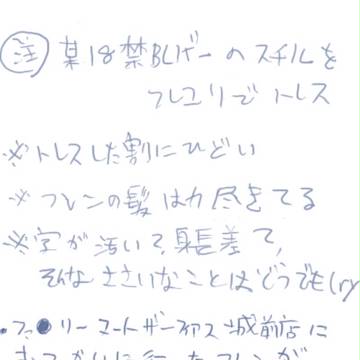 注 某18禁BLゲーのスチルを
フレユリでトレス
※トレスした割にひどい
※フレンの髪は力尽きてる
※字が汚い?身長差て、
そんなささいなことはどうでも(ry
・ファ●リーマートザーフィアス城前店に